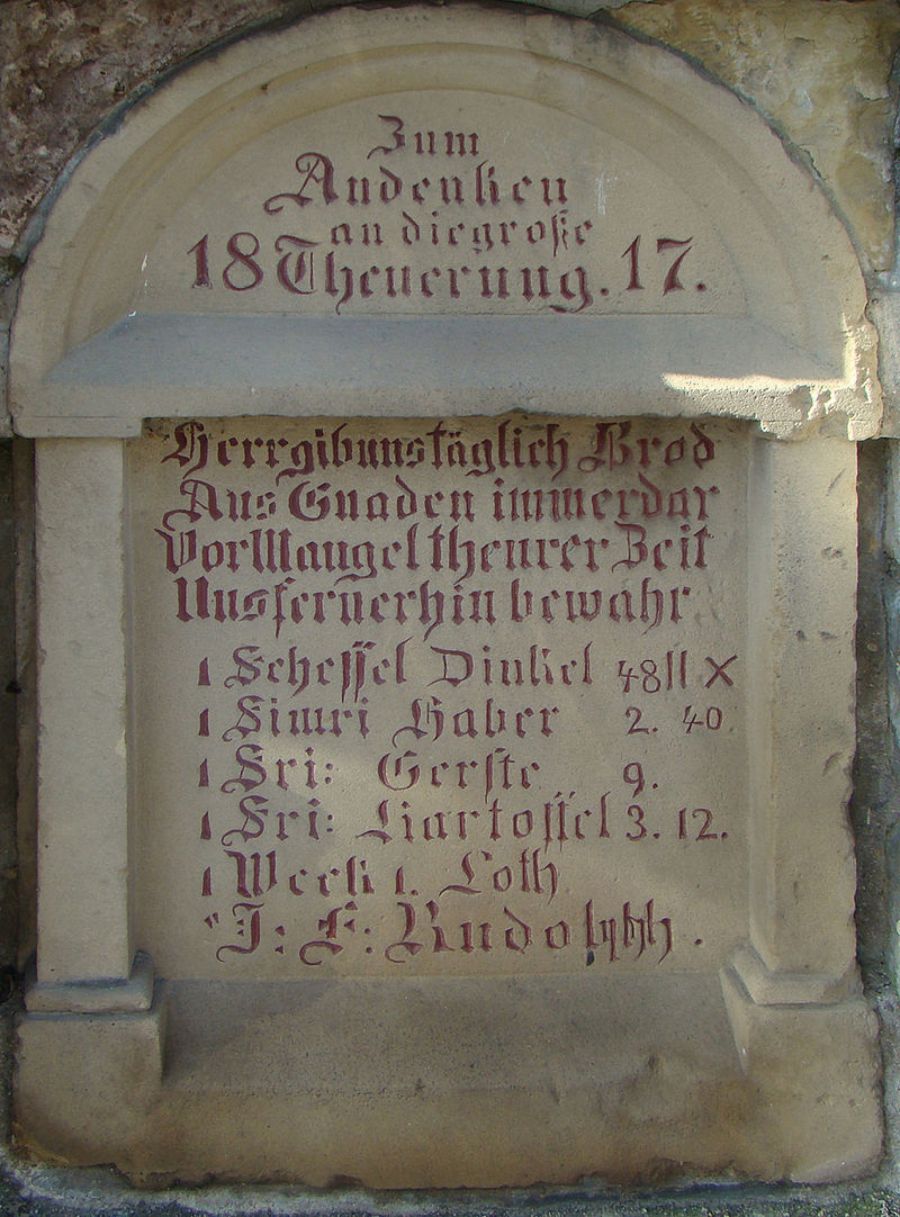 Zum
Andenken
an die große
18 Theuerung. 17.
Herr gib uns täglich Brod
Aus Gnaden immerdar
Vor Mangel theurer Zeit
Uns fernerhin bewahr
1 Scheffel Dinkel 48 fl x
1 Simri Haber 2. 40.
1 Sri: Gerste 9.
1 Sri: Kartoffel 3. 12.
1 Werk 1. Loth
J: F: Rudolphh.